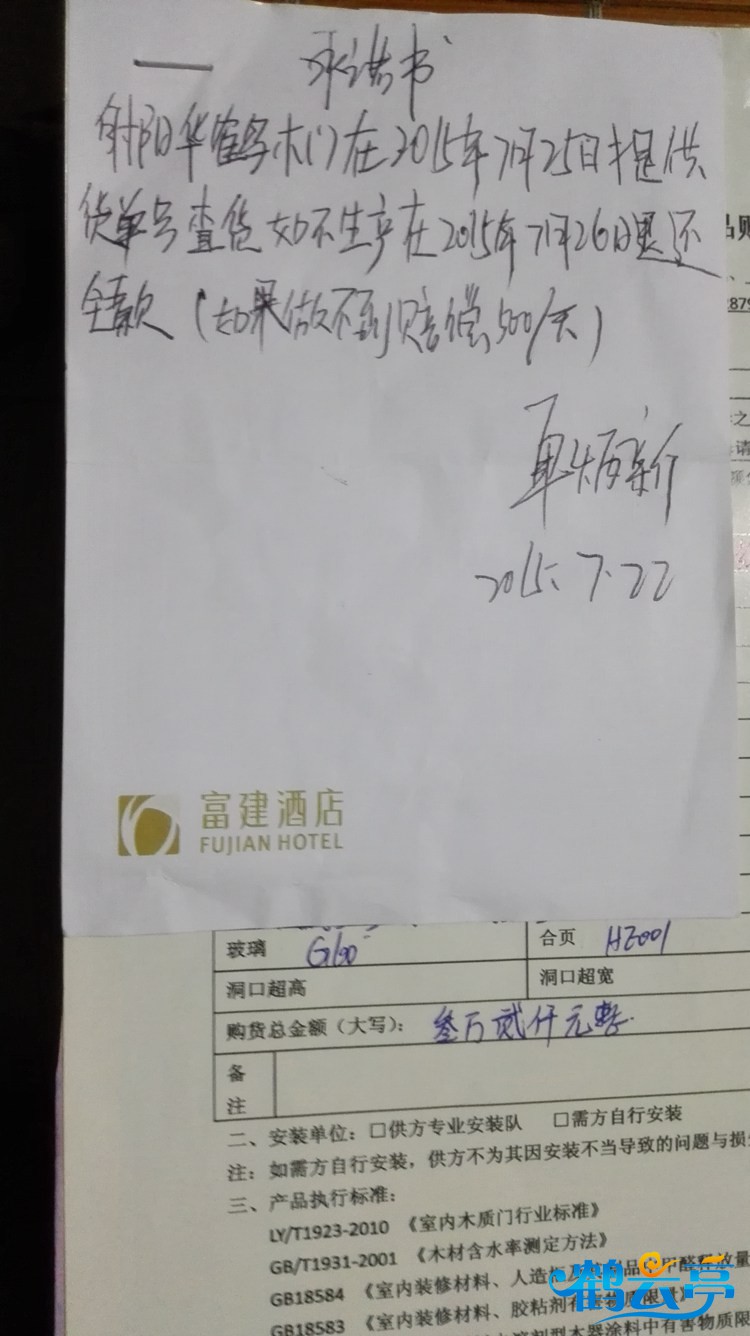 承诺书
射阳华鹤木门在2015年7月25日提供
货单号查货如不生产在2015年7月26日退还
全款（如果做不到赔偿500/天）
2015.7.22
富建酒店
FUJIAN HOTEL
玻璃 G190 合页 HZ001
洞口超高 洞口超宽
购货总金额（大写）： 叁万贰仟元整.
备
注
二、安装单位：□供方专业安装队 □需方自行安装
注：如需方自行安装，供方不为其因安装不当导致的问题与损
三、产品执行标准：
LY/T1923-2010 《室内木质门行业标准》
GB/T1931-2001 《木材含水率测定方法》
GB18584 《室内装修材料、人造板及其制品中甲醛释放量
GB18583 《室内装修材料、胶粘剂有害物质限量》
木器涂料中有害物质限
鹤云亭